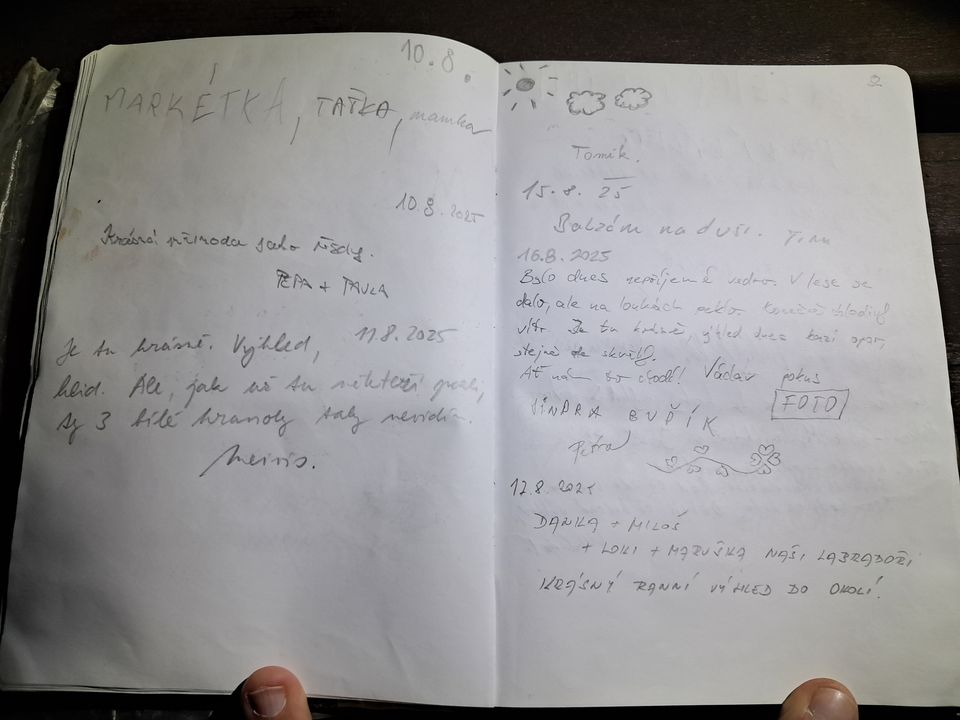 10.8.
MARKÉTKA, TAŤKA, mamka
10.8.2025
Krásná příroda jako vždy.
PEPA + PAVLA
11.8.2025
Je tu krásně. Výhled,
klid. Ale, jak už tu někteří psali,
ty 3 bílé hranoly taky nevidím.
2
Tomík.
15.8. 25
Balzám na duši. Tima
16.8.2025
Bylo dnes nepříjemné vedro. V lese se
dalo, ale na loukách peklo. Konečně chladivý
vítr. Je tu krásně, výhled dnes kazí opar,
stejně to skvělý.
Ať nám to chodí! Václav pokus
FOTO
JINDRA BUPÍK
Petra
17.8.2025
DANKA + MILOŠ
+ LOKI + MARUŠKA NAŠI LABRADOŘI
KRÁSNÝ RANNÍ VÝHLED DO OKOLÍ.